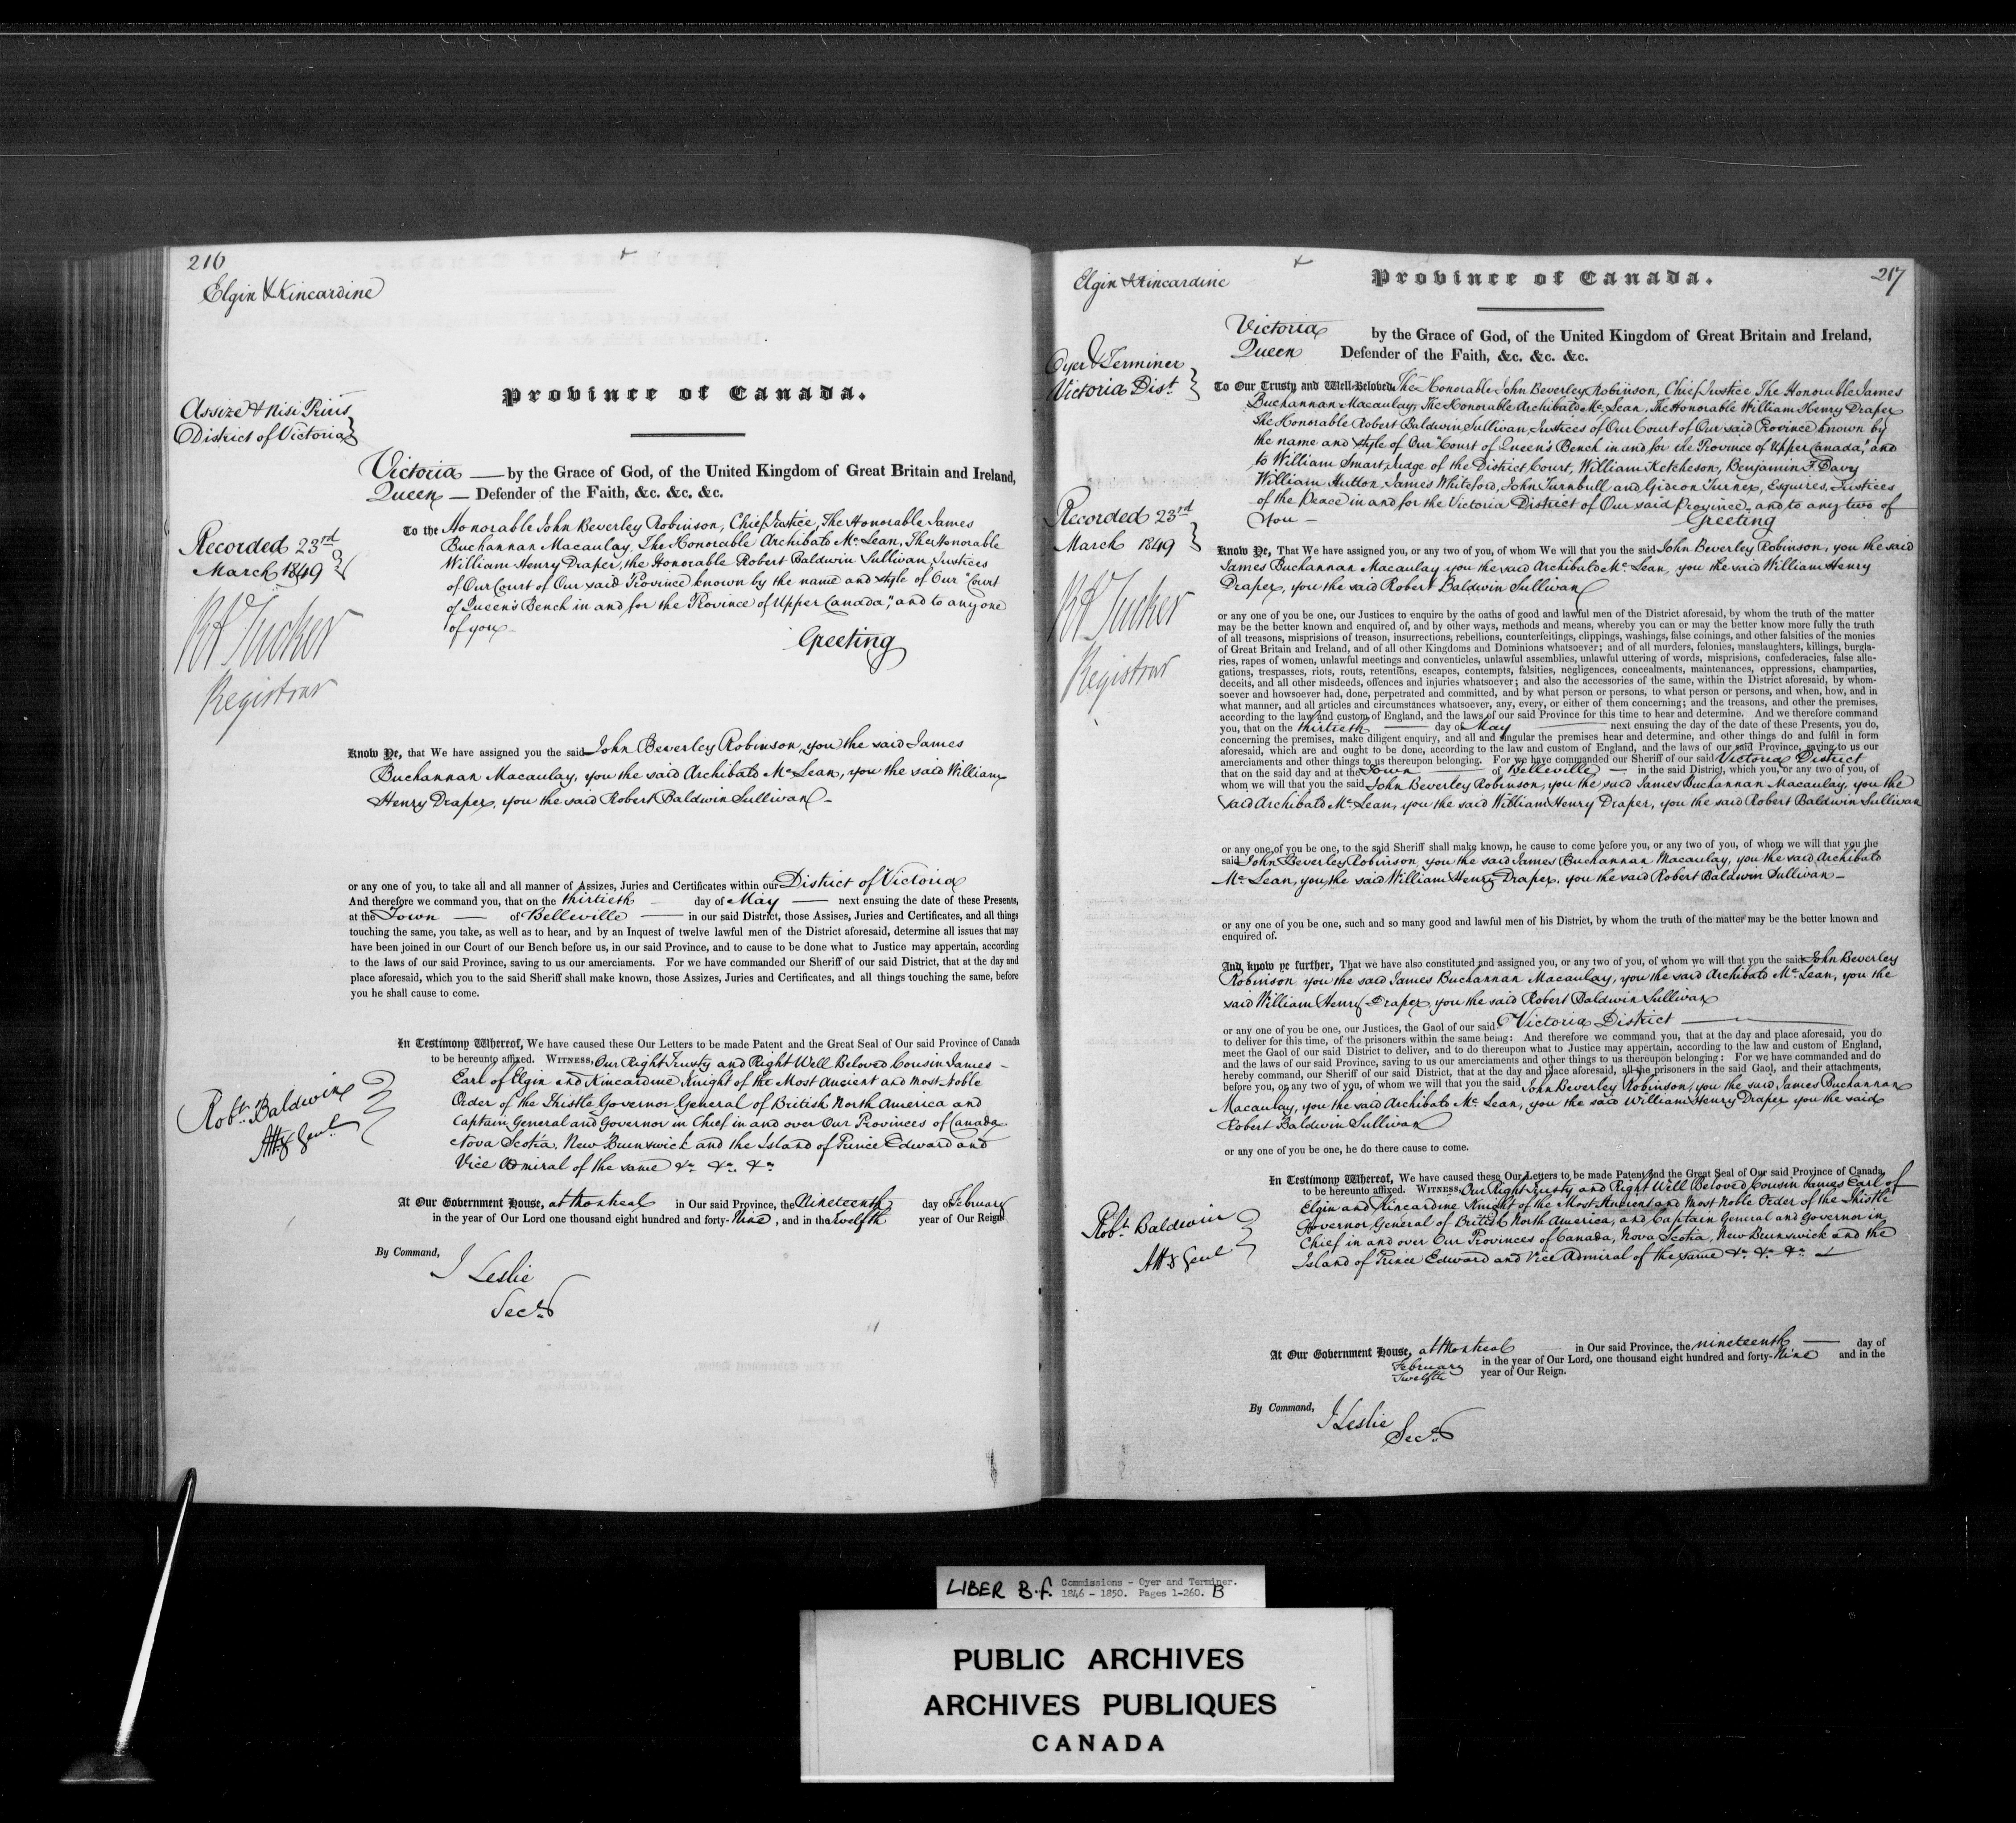 216
Elgin & Kincardine
Province of Canada.
Assize & Nisi Prius
District of Victoria
Victoria — by the Grace of God, of the United Kingdom of Great Britain and Ireland,
Queen — Defender of the Faith, &c. &c. &c.
To the Honorable John Beverley Robinson, Chief Justice, The Honorable James
Buchannan Macaulay, The Honorable Archibald Mc. Lean, The Honorable
William Henry Draper, the Honorable Robert Baldwin Sullivan, Justices
of Our Court of Our said Province known by the name and style of Our "Court
of Queen's Bench in and for the Province of Upper Canada", and to any one
of you —
Greeting
Recorded 23rd
March 1849
RA Tucker
Registrar
Know Ye, that We have assigned you the said John Beverley Robinson, you the said James
Buchannan Macaulay, you the said Archibald Mc. Lean, you the said William
Henry Draper, you the said Robert Baldwin Sullivan —
or any one of you, to take all and all manner of Assizes, Juries and Certificates within our District of Victoria
And therefore we command you, that on the thirtieth — day of May — next ensuing the date of these Presents,
at the Town — of Belleville — in our said District, those Assises, Juries and Certificates, and all things
touching the same, you take, as well as to hear, and by an Inquest of twelve lawful men of the District aforesaid, determine all issues that may
have been joined in our Court of our Bench before us, in our said Province, and to cause to be done what to Justice may appertain, according
to the laws of our said Province, saving to us our amerciaments. For we have commanded our Sheriff of our said District, that at the day and
place aforesaid, which you to the said Sheriff shall make known, those Assizes, Juries and Certificates, and all things touching the same, before
you he shall cause to come.
In Testimony Whereof, We have caused these Our Letters to be made Patent and the Great Seal of Our said Province of Canada
to be hereunto affixed. WITNESS, Our Right Trusty and Right Well Beloved Cousin James —
Earl of Elgin and Kincardine Knight of the Most Ancient and most Noble
Order of the Thistle Governor General of British North America and
Captain General and Governor in Chief in and over Our Provinces of Canada
Nova Scotia, New Brunswick and the Island of Prince Edward and
Vice Admiral of the same &c. &c. &c.
Robt. Baldwin
Atty Genl.
At Our Government House, at Montreal in Our said Province, the Nineteenth day of February
in the year of Our Lord one thousand eight hundred and forty-Nine, and in the Twelfth year of Our Reign
By Command,
J Leslie
Secy.
217
Elgin & Kincardine
Province of Canada.
Victoria by the Grace of God, of the United Kingdom of Great Britain and Ireland,
Queen Defender of the Faith, &c. &c. &c.
Oyer & Terminer
Victoria Dist.
To Our Trusty and Well-Beloved The Honorable John Beverley Robinson, Chief Justice The Honorable James
Buchannan Macaulay, The Honorable Archibald Mc. Lean, The Honorable William Henry Draper
The Honorable Robert Baldwin Sullivan, Justices of Our Court of Our said Province known by
the name and style of Our "Court of Queen's Bench in and for the Province of Upper Canada", and
to William Smart, Judge of the District Court, William Ketcheson, Benjamin F. Davy
William Hutton, James Whiteford, John Turnbull and Gideon Turner, Esquires, Justices
of the Peace in and for the Victoria District of Our said Province, and to any two of
You —
Greeting
Recorded 23rd
March 1849
RA Tucker
Registrar
Know Ye, That We have assigned you, or any two of you, of whom We will that you the said John Beverley Robinson, you the said
James Buchannan Macaulay you the said Archibald Mc. Lean, you the said William Henry
Draper, you the said Robert Baldwin Sullivan
or any one of you be one, our Justices to enquire by the oaths of good and lawful men of the District aforesaid, by whom the truth of the matter
may be the better known and enquired of, and by other ways, methods and means, whereby you can or may the better know more fully the truth
of all treasons, misprisions of treason, insurrections, rebellions, counterfeitings, clippings, washings, false coinings, and other falsities of the monies
of Great Britain and Ireland, and of all other Kingdoms and Dominions whatsoever; and of all murders, felonies, manslaughters, killings, burgla-
ries, rapes of women, unlawful meetings and conventicles, unlawful assemblies, unlawful uttering of words, misprisions, confederacies, false alle-
gations, trespasses, riots, routs, retentions, escapes, contempts, falsities, negligences, concealments, maintenances, oppressions, champarties,
deceits, and all other misdeeds, offences and injuries whatsoever; and also the accessories of the same, within the District aforesaid, by whom-
soever and howsoever had, done, perpetrated and committed, and by what person or persons, to what person or persons, and when, how, and in
what manner, and all articles and circumstances whatsoever, any, every, or either of them concerning; and the treasons, and other the premises,
according to the law and custom of England, and the laws of our said Province for this time to hear and determine. And we therefore command
you, that on the thirtieth — day of May — next ensuing the day of the date of these Presents, you do,
concerning the premises, make diligent enquiry, and all and singular the premises hear and determine, and other things do and fulfil in form
aforesaid, which are and ought to be done, according to the law and custom of England, and the laws of our said Province, saving to us our
amerciaments and other things to us thereupon belonging. For we have commanded our Sheriff of our said Victoria District
that on the said day and at the Town — of Belleville — in the said District, which you, or any two of you, of
whom we will that you the said John Beverley Robinson, you the said James Buchannan Macaulay, you the
said Archibald Mc. Lean, you the said William Henry Draper, you the said Robert Baldwin Sullivan
or any one of you be one, to the said Sheriff shall make known, he cause to come before you, or any two of you, of whom we will that you the
said John Beverley Robinson, you the said James Buchannan Macaulay, you the said Archibald
Mc. Lean, you the said William Henry Draper, you the said Robert Baldwin Sullivan —
or any one of you be one, such and so many good and lawful men of his District, by whom the truth of the matter may be the better known and
enquired of.
And know ye further, That we have also constituted and assigned you, or any two of you, of whom we will that you the said John Beverley
Robinson you the said James Buchannan Macaulay, you the said Archibald Mc. Lean, you the
said William Henry Draper, you the said Robert Baldwin Sullivan
or any one of you be one, our Justices, the Gaol of our said Victoria District —
to deliver for this time, of the prisoners within the same being: And therefore we command you, that at the day and place aforesaid, you do
meet the Gaol of our said District to deliver, and to do thereupon what to Justice may appertain, according to the law and custom of England,
and the laws of our said Province, saving to us our amerciaments and other things to us thereupon belonging: For we have commanded and do
hereby command, our Sheriff of our said District, that at the day and place aforesaid, all the prisoners in the said Gaol, and their attachments,
before you, or any two of you, of whom we will that you the said John Beverley Robinson, you the said James Buchannan
Macaulay, you the said Archibald Mc. Lean, you the said William Henry Draper you the said
Robert Baldwin Sullivan
or any one of you be one, he do there cause to come.
In Testimony Whereof, We have caused these Our Letters to be made Patent and the Great Seal of Our said Province of Canada,
to be hereunto affixed. WITNESS, Our Right Trusty and Right Well Beloved Cousin James Earl of
Elgin and Kincardine Knight of the Most Ancient and Most Noble Order of the Thistle
Governor General of British North America, and Captain General and Governor in
Chief in and over Our Provinces of Canada, Nova Scotia, New Brunswick and the
Island of Prince Edward and Vice Admiral of the same &c. &c. &c.
Robt. Baldwin
Atty Genl
At Our Government House, at Montreal in Our said Province, the nineteenth — day of
February in the year of Our Lord, one thousand eight hundred and forty-Nine and in the
Twelfth year of Our Reign.
By Command,
J Leslie
Secy.
LIBER B.f. Commissions - Oyer and Terminer.
1846 - 1850. Pages 1-260. B
PUBLIC ARCHIVES
ARCHIVES PUBLIQUES
CANADA